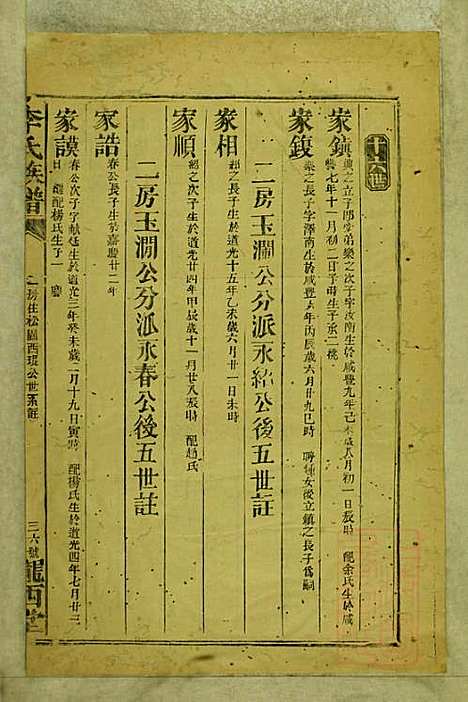 家鎮 典之立子即堂弟樂之次子字汝南生於咸豐九年己未歲八月初一日辰時 配余氏生於咸豐七年十一月初二日子時生子承二桃
家鍑 樂之長子字澤南生於咸豐六年丙辰歲六月廿九巳時 聘鍾女後立鎮之長子爲嗣
二房玉澗公分派永紹公後五世註
家相 紹之長子生於道光十五年乙未歲六月廿一日未時
家順 紹之次子生於道光廿四年甲辰歲十一月廿八辰時 配趙氏
二房玉澗公分派永春公後五世註
家誥 春公長子生於嘉慶廿二年
家謨 春公次子字獻廷生於道光三年癸未歲二月十九日寅時 配楊氏生於道光四年七月廿三日 繼配楊氏生子
李氏族譜
二房住松園西琨公世系註
三六號
隴西堂